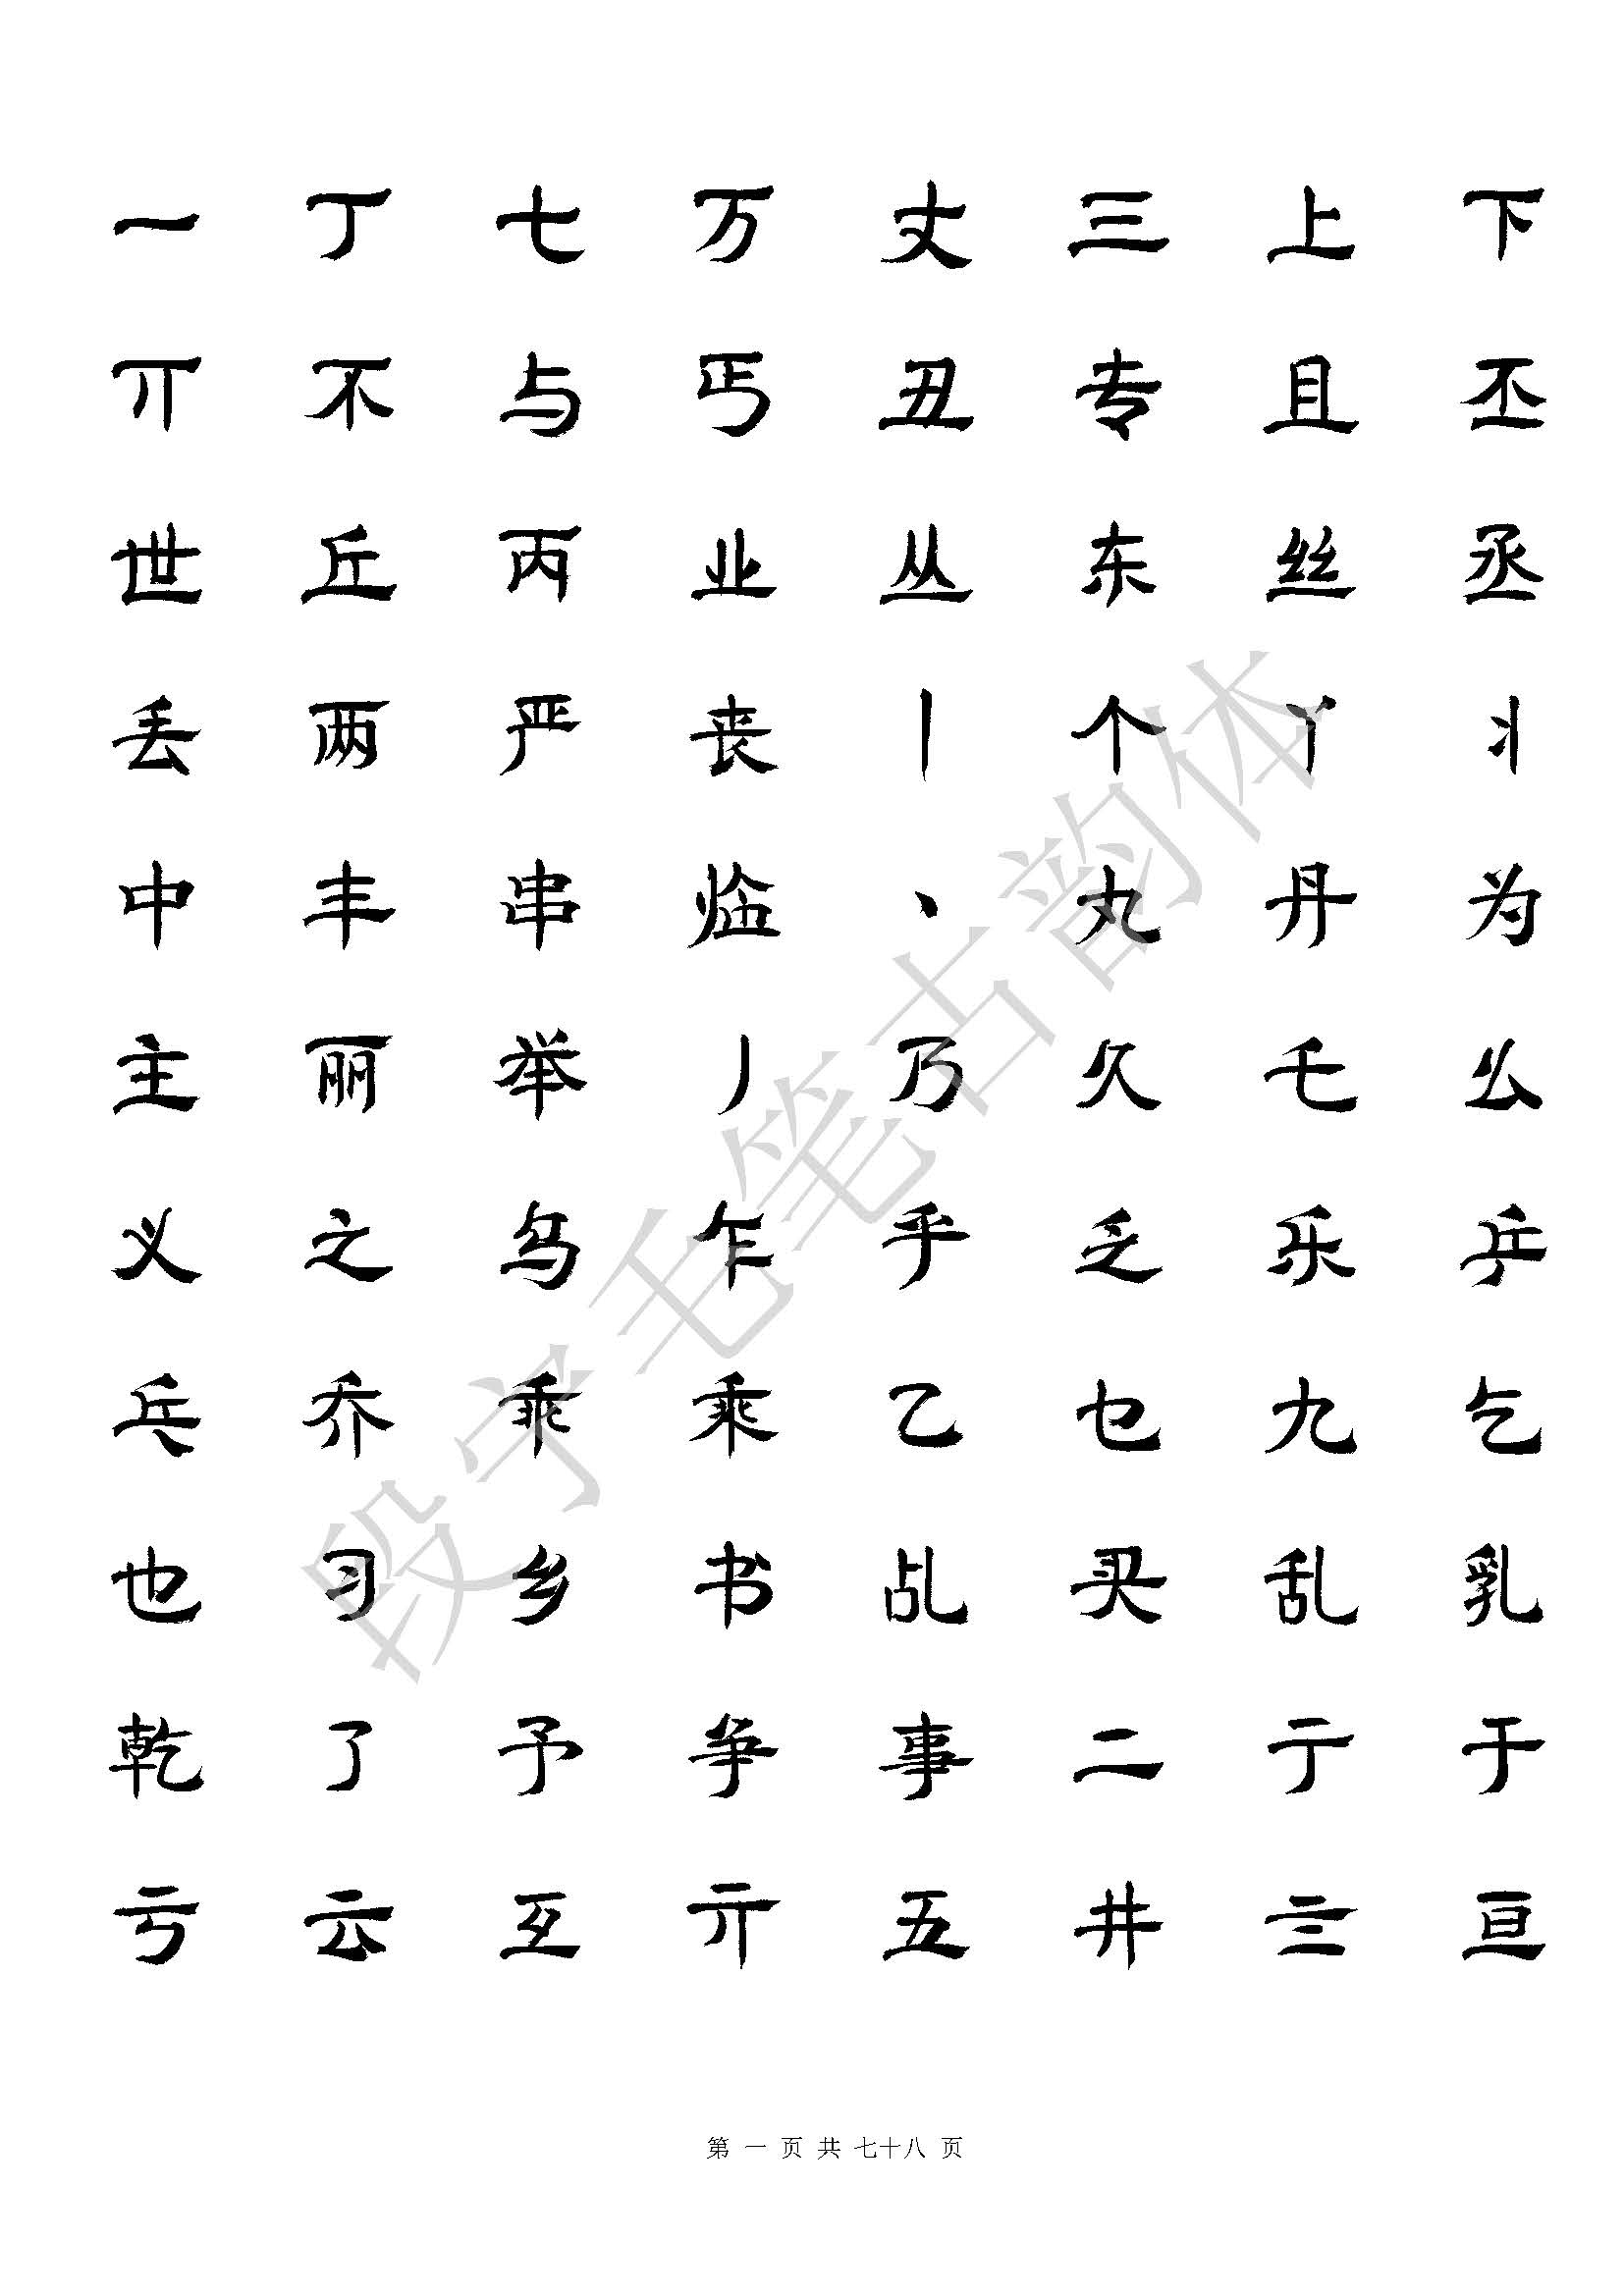 一 丁 七 万 丈 三 上 下
丌 不 与 丐 丑 专 且 丕
世 丘 丙 业 丛 东 丝 丞
丢 两 严 丧 丨 个 丫 丬
中 丰 串 临 丶 丸 丹 为
主 丽 举 丿 乃 久 乇 么
义 之 乌 乍 乎 乏 乐 乒
乓 乔 乖 乘 乙 乜 九 乞
也 习 乡 书 乩 买 乱 乳
乾 了 予 争 事 二 亍 于
亏 云 互 亓 五 井 亖 亘
段宁毛笔古韵体
第 一 页 共 七十八 页